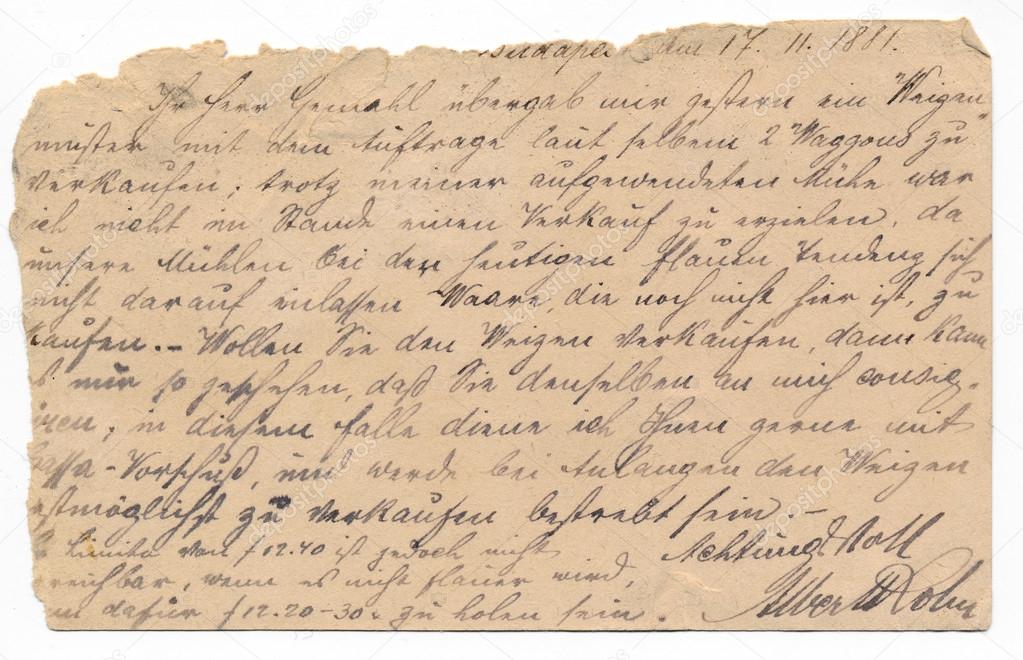 am 17. 11. 1881.
Ihr Herr Gemahl übergab mir gestern ein Weizen
muster mit dem Auftrage laut selbem 2 Waggons zu
verkaufen; trotz meiner aufgewendeten Mühe war
ich nicht im Stande einen Verkauf zu erzielen, da
unsere Mühlen bei der heutigen flauen Tendenz sich
nicht darauf einlassen Waare, die noch nicht hier ist, zu
kaufen. – Wollen Sie den Weizen verkaufen, dann kann
es nur so geschehen, daß Sie denselben an mich consig-
iren; in diesem Falle diene ich Ihnen gerne mit
Cassa-Vorschuß, und werde bei Anlangen den Weizen
estmöglichst zu verkaufen bestrebt sein. –
Limito von f 12.40 ist jedoch nicht
Achtungsvoll
reichbar, wenn es nicht flauer wird,
dafür f 12.20–30 zu holen sein.
Albert